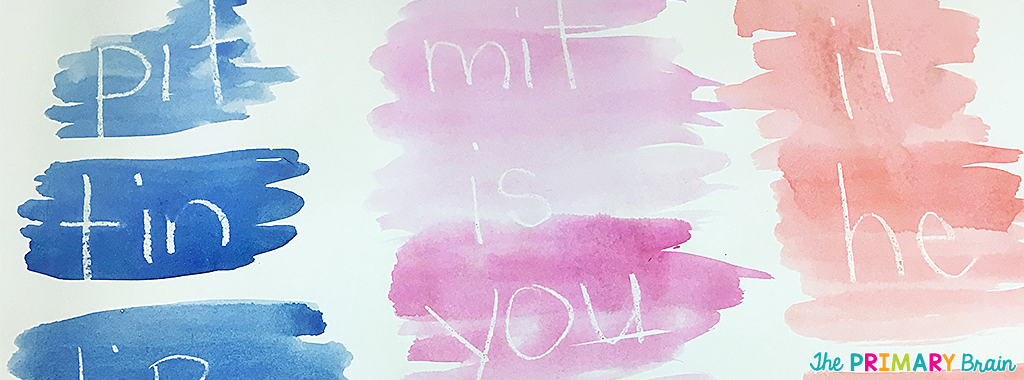 pit
tin
mit
is
you
it
he
The PRIMARY Brain